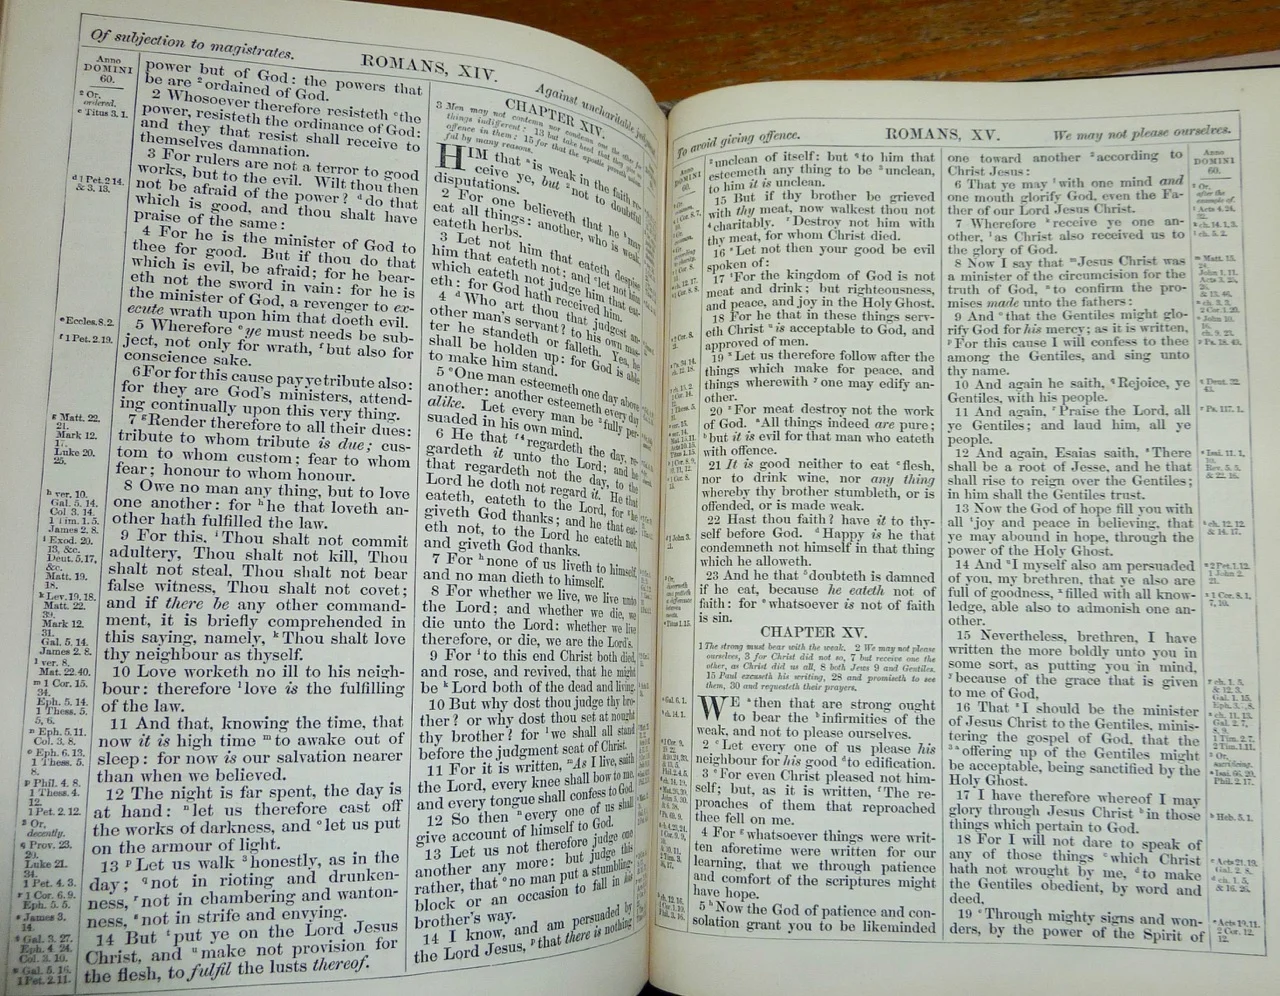 Of subjection to magistrates.
ROMANS, XIV.
Against uncharitable
Anno
DOMINI
60.
2 Or,
ordered.
c Titus 3. 1.
d 1 Pet. 2 14.
& 3. 13.
e Eccles. 8. 2.
f 1 Pet. 2. 19.
g Matt. 22.
21.
Mark 12.
17.
Luke 20.
25.
h ver. 10.
Gal. 5. 14.
Col 3. 14.
1 Tim. 1. 5.
James 2. 8.
i Exod. 20.
13, &c.
Deut. 5. 17,
&c.
Matt. 19.
18.
k Lev. 19. 18.
Matt. 22.
39.
Mark 12.
31.
Gal. 5. 14.
James 2. 8.
l ver. 8.
Mat. 22. 40.
m 1 Cor. 15.
34.
Eph. 5. 14.
1 Thess. 5.
5, 6.
n Eph. 5. 11.
Col. 3. 8.
o Eph. 6. 13.
1 Thess. 5.
8.
p Phil. 4. 8.
1 Thess. 4.
12.
1 Pet. 2. 12.
3 Or,
decently.
q Prov. 23.
20.
Luke 21.
34.
1 Pet. 4. 3.
r 1 Cor. 6. 9.
Eph. 5. 5.
s James 3.
14.
t Gal. 3. 27.
Eph. 4. 24.
Col. 3. 10.
u Gal. 5. 16.
1 Pet. 2. 11.
power but of God: the powers that
be are 2 ordained of God.
2 Whosoever therefore resisteth c the
power, resisteth the ordinance of God:
and they that resist shall receive to
themselves damnation.
3 For rulers are not a terror to good
works, but to the evil. Wilt thou then
not be afraid of the power? d do that
which is good, and thou shalt have
praise of the same:
4 For he is the minister of God to
thee for good. But if thou do that
which is evil, be afraid; for he bear-
eth not the sword in vain: for he is
the minister of God, a revenger to ex-
ecute wrath upon him that doeth evil.
5 Wherefore e ye must needs be sub-
ject, not only for wrath, f but also for
conscience sake.
6 For for this cause pay ye tribute also:
for they are God's ministers, attend-
ing continually upon this very thing.
7 g Render therefore to all their dues:
tribute to whom tribute is due; cus-
tom to whom custom; fear to whom
fear; honour to whom honour.
8 Owe no man any thing, but to love
one another: for h he that loveth an-
other hath fulfilled the law.
9 For this, i Thou shalt not commit
adultery, Thou shalt not kill, Thou
shalt not steal, Thou shalt not bear
false witness, Thou shalt not covet;
and if there be any other command-
ment, it is briefly comprehended in
this saying, namely, k Thou shalt love
thy neighbour as thyself.
10 Love worketh no ill to his neigh-
bour: therefore l love is the fulfilling
of the law.
11 And that, knowing the time, that
now it is high time m to awake out of
sleep: for now is our salvation nearer
than when we believed.
12 The night is far spent, the day is
at hand: n let us therefore cast off
the works of darkness, and o let us put
on the armour of light.
13 p Let us walk 3 honestly, as in the
day; q not in rioting and drunken-
ness, r not in chambering and wanton-
ness, s not in strife and envying.
14 But t put ye on the Lord Jesus
Christ, and u make not provision for
the flesh, to fulfil the lusts thereof.
CHAPTER XIV.
3 Men may not contemn nor condemn one the other for
things indifferent; 13 but take heed that they give no
offence in them: 15 for that the apostle proveth unlaw-
ful by many reasons.
HIM that a is weak in the faith re-
ceive ye, but 2 not to doubtful
disputations.
2 For one believeth that he b may
eat all things: another, who is weak,
eateth herbs.
3 Let not him that eateth despise
him that eateth not; and c let not him
which eateth not judge him that eat-
eth: for God hath received him.
4 d Who art thou that judgest an-
other man's servant? to his own mas-
ter he standeth or falleth. Yea, he
shall be holden up: for God is able
to make him stand.
5 e One man esteemeth one day above
another: another esteemeth every day
alike. Let every man be 2 fully per-
suaded in his own mind.
6 He that f 4 regardeth the day, re-
gardeth it unto the Lord; and he
that regardeth not the day, to the
Lord he doth not regard it. He that
eateth, eateth to the Lord, for g he
giveth God thanks; and he that eat-
eth not, to the Lord he eateth not,
and giveth God thanks.
7 For h none of us liveth to himself,
and no man dieth to himself.
8 For whether we live, we live unto
the Lord; and whether we die, we
die unto the Lord: whether we live
therefore, or die, we are the Lord's.
9 For i to this end Christ both died,
and rose, and revived, that he might
be k Lord both of the dead and living.
10 But why dost thou judge thy bro-
ther? or why dost thou set at nought
thy brother? for l we shall all stand
before the judgment seat of Christ.
11 For it is written, m As I live, saith
the Lord, every knee shall bow to me,
and every tongue shall confess to God.
12 So then n every one of us shall
give account of himself to God.
13 Let us not therefore judge one
another any more: but judge this
rather, that o no man put a stumbling-
block or an occasion to fall in his
brother's way.
14 I know, and am persuaded by
the Lord Jesus, p that there is nothing
To avoid giving offence.
ROMANS, XV.
We may not please ourselves.
2 unclean of itself: but q to him that
esteemeth any thing to be 3 unclean,
to him it is unclean.
15 But if thy brother be grieved
with thy meat, now walkest thou not
4 charitably. r Destroy not him with
thy meat, for whom Christ died.
16 s Let not then your good be evil
spoken of:
17 t For the kingdom of God is not
meat and drink; but righteousness,
and peace, and joy in the Holy Ghost.
18 For he that in these things serv-
eth Christ u is acceptable to God, and
approved of men.
19 x Let us therefore follow after the
things which make for peace, and
things wherewith y one may edify an-
other.
20 z For meat destroy not the work
of God. a All things indeed are pure;
b but it is evil for that man who eateth
with offence.
21 It is good neither to eat c flesh,
nor to drink wine, nor any thing
whereby thy brother stumbleth, or is
offended, or is made weak.
22 Hast thou faith? have it to thy-
self before God. d Happy is he that
condemneth not himself in that thing
which he alloweth.
23 And he that 5 doubteth is damned
if he eat, because he eateth not of
faith: for e whatsoever is not of faith
is sin.
CHAPTER XV.
1 The strong must bear with the weak. 2 We may not please
ourselves, 3 for Christ did not so, 7 but receive one the
other, as Christ did us all, 8 both Jews 9 and Gentiles.
15 Paul excuseth his writing, 28 and promiseth to see
them, 30 and requesteth their prayers.
WE a then that are strong ought
to bear the b infirmities of the
weak, and not to please ourselves.
2 c Let every one of us please his
neighbour for his good d to edification.
3 e For even Christ pleased not him-
self; but, as it is written, f The re-
proaches of them that reproached
thee fell on me.
4 For g whatsoever things were writ-
ten aforetime were written for our
learning, that we through patience
and comfort of the scriptures might
have hope.
5 h Now the God of patience and con-
solation grant you to be likeminded
one toward another 2 according to
Christ Jesus:
6 That ye may i with one mind and
one mouth glorify God, even the Fa-
ther of our Lord Jesus Christ.
7 Wherefore k receive ye one an-
other, l as Christ also received us to
the glory of God.
8 Now I say that m Jesus Christ was
a minister of the circumcision for the
truth of God, n to confirm the pro-
mises made unto the fathers:
9 And o that the Gentiles might glo-
rify God for his mercy; as it is written,
p For this cause I will confess to thee
among the Gentiles, and sing unto
thy name.
10 And again he saith, q Rejoice, ye
Gentiles, with his people.
11 And again, r Praise the Lord, all
ye Gentiles; and laud him, all ye
people.
12 And again, Esaias saith, s There
shall be a root of Jesse, and he that
shall rise to reign over the Gentiles;
in him shall the Gentiles trust.
13 Now the God of hope fill you with
all t joy and peace in believing, that
ye may abound in hope, through the
power of the Holy Ghost.
14 And u I myself also am persuaded
of you, my brethren, that ye also are
full of goodness, x filled with all know-
ledge, able also to admonish one an-
other.
15 Nevertheless, brethren, I have
written the more boldly unto you in
some sort, as putting you in mind,
y because of the grace that is given
to me of God,
16 That z I should be the minister
of Jesus Christ to the Gentiles, minis-
tering the gospel of God, that the
3 a offering up of the Gentiles might
be acceptable, being sanctified by the
Holy Ghost.
17 I have therefore whereof I may
glory through Jesus Christ b in those
things which pertain to God.
18 For I will not dare to speak of
any of those things c which Christ
hath not wrought by me, d to make
the Gentiles obedient, by word and
deed,
19 e Through mighty signs and won-
ders, by the power of the Spirit of
Anno
DOMINI
60.
2 Or,
after the
example of.
i Acts 4. 24,
32.
k ch. 14. 1, 3.
l ch. 5. 2.
m Matt. 15.
24.
John 1. 11.
Acts 3. 25,
26.
& 13. 46.
n ch. 3. 3.
2 Cor. 1. 20.
o John 10.
16.
ch. 9. 23.
p Ps. 18. 49.
q Deut. 32.
43.
r Ps. 117. 1.
s Isai. 11. 1,
10.
Rev. 5. 5.
& 22. 16.
t ch. 12. 12.
& 14. 17.
u 2 Pet. 1. 12.
1 John 2.
21.
x 1 Cor. 8. 1,
7, 10.
y ch. 1. 5.
& 12. 3.
Gal. 1. 15.
z ch. 11. 13.
Gal. 2. 7,
8, 9.
1 Tim. 2. 7.
2 Tim. 1. 11.
3 Or,
sacrificing.
a Isai. 66. 20.
Phil. 2. 17.
b Heb. 5. 1.
c Acts 21. 19.
Gal. 2. 8.
d ch. 1. 5.
& 16. 26.
e Acts 19. 11.
2 Cor. 12.
12.